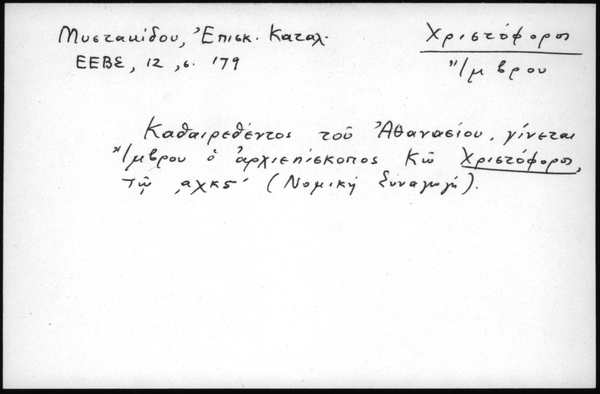 Μυστακίδου, Ἐπισκ. Καταλ.
ΕΕΒΣ, 12, σ. 179
Χριστόφορος
Ἴμβρου
Καθαιρεθέντος τοῦ Ἀθανασίου, γίνεται
Ἴμβρου ὁ ἀρχιεπίσκοπος Κῶ Χριστόφορος,
τῷ ͵αχκς΄ (Νομικὴ Συναγωγή).